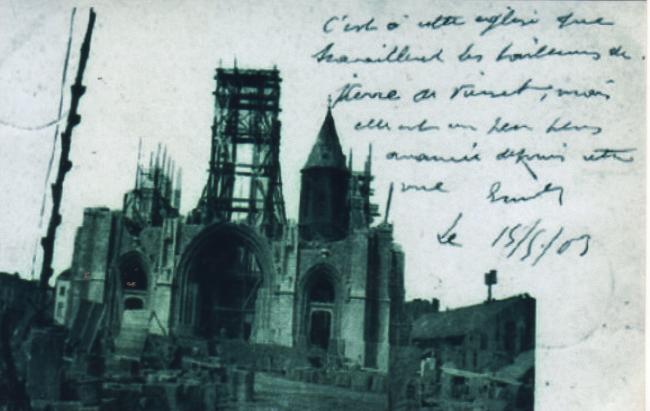 C'est à cette église que
travaillent les tailleurs de
pierre de , mais
elle est un peu plus
avancée depuis cette
vue
Le 15/5/03